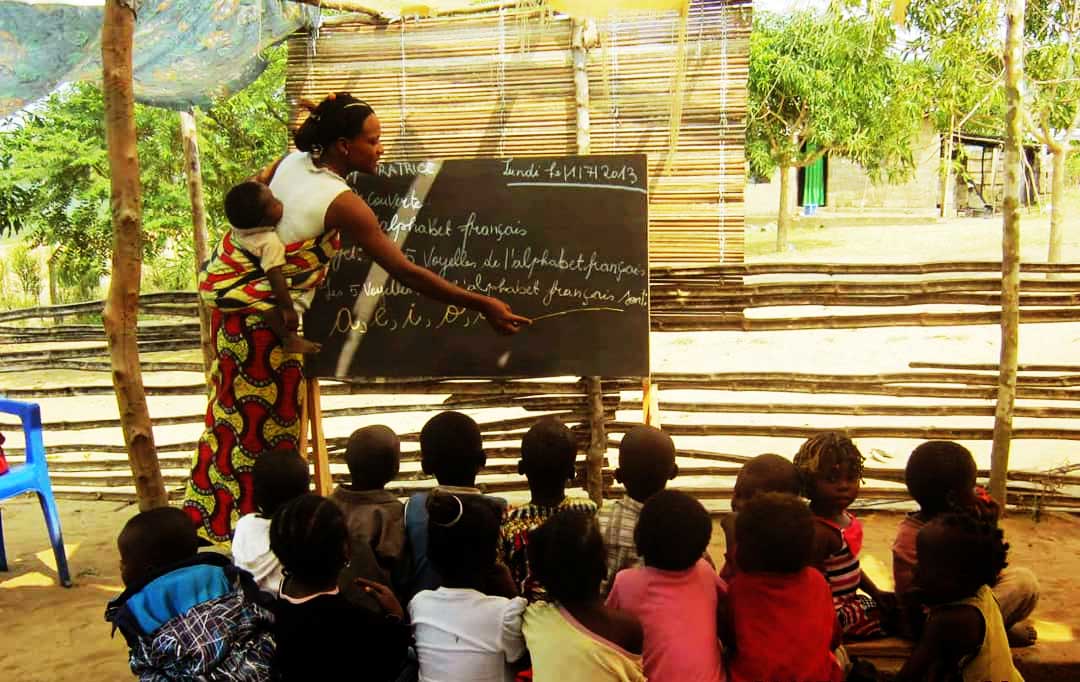 RATRICE
Lundi Le 11/7/2013
couverte
alphabet français
jet: 5 Voyelles de l'alphabet français
Les 5 Voyelles l'alphabet français sont:
a, e, i, o,